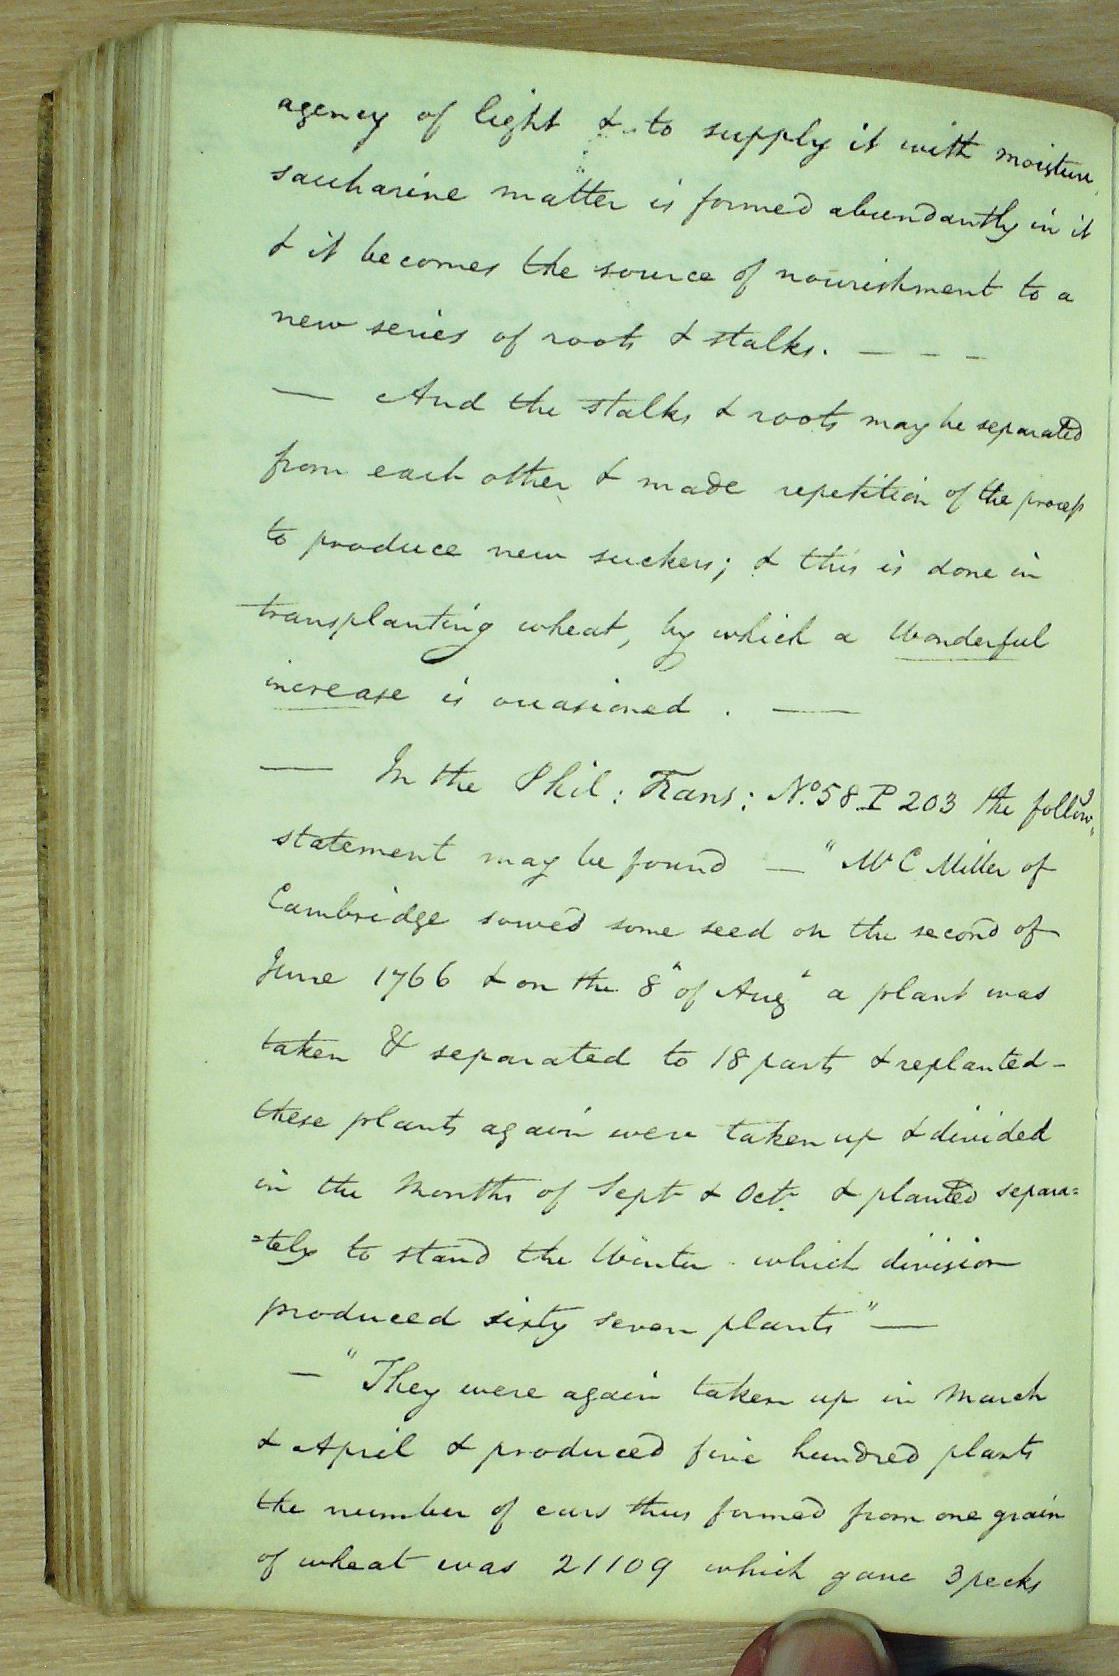 agency of light & to supply it with moisture
saccharine matter is formed abundantly in it
& it becomes the source of nourishment to a
new series of roots & stalks. — - - -
— And the stalks & roots may be separated
from each other & made repetition of the process
to produce new suckers; & this is done in
transplanting wheat, by which a Wonderful
increase is occasioned . —
— In the Phil: Trans: No. 58 P 203 the followg
statement may be found — " Mr C Miller of
Cambridge sowed some seed on the second of
June 1766 & on the 8" of Aug" a plant was
taken & separated to 18 parts & replanted -
these plants again were taken up & divided
in the Months of Sept & Oct. & planted separa=
=tely to stand the Winter which division
produced sixty seven plants " —
— " They were again taken up in March
& April & produced five hundred plants
the number of ears thus formed from one grain
of wheat was 21109 which gave 3 pecks